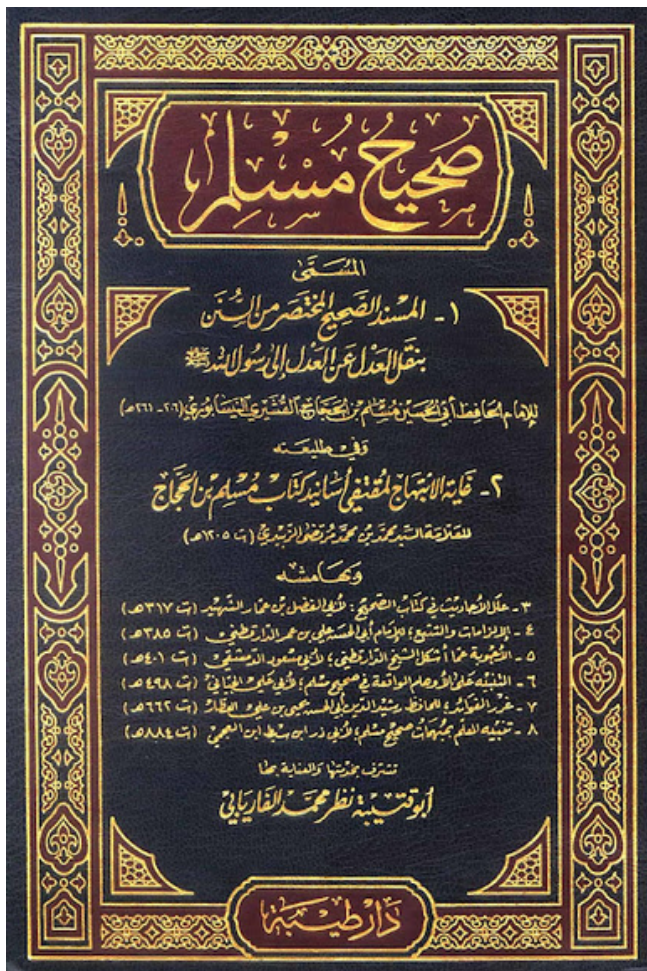 صَحِيحُ مُسْلِمٍ
المُسَمَّى
١- المسند الصحيح المختصر من السُّنَن
بنقل العدل عن العدل إلى رسول الله ﷺ
للإمام الحافظ أبي الحسين مسلم بن الحجاج القشيري النيسابوري (٢٠٦-٢٦١هـ)
وفي طليعته
٢- غاية الابتهاج لمقتفي أسانيد كتاب مسلم بن الحجاج
للعلامة السيد محمد بن محمد مرتضى الزبيدي (ت ١٢٠٥هـ)
وبهامشه
٣- علل الأحاديث في كتاب الصحيح؛ لأبي الفضل بن عمار الشهيد (ت ٣١٧هـ)
٤- الإلزامات والتتبع؛ للإمام أبي الحسن علي بن عمر الدارقطني (ت ٣٨٥هـ)
٥- الأجوبة عما أشكل الشيخ الدارقطني؛ لأبي مسعود الدمشقي (ت ٤٠١هـ)
٦- التنبيه على الأوهام الواقعة في صحيح مسلم؛ لأبي علي الجياني (ت ٤٩٨هـ)
٧- غرر الفوائد؛ للحافظ رشيد الدين أبي الحسين يحيى بن علي العطار (ت ٦٦٢هـ)
٨- تنبيه المعلم بمبهمات صحيح مسلم؛ لأبي ذر ابن سبط ابن العجمي (ت ٨٨٤هـ)
تشرف بخدمتها والعناية بها
أبو قتيبة نظر محمد الفاريابي
دار طيبة